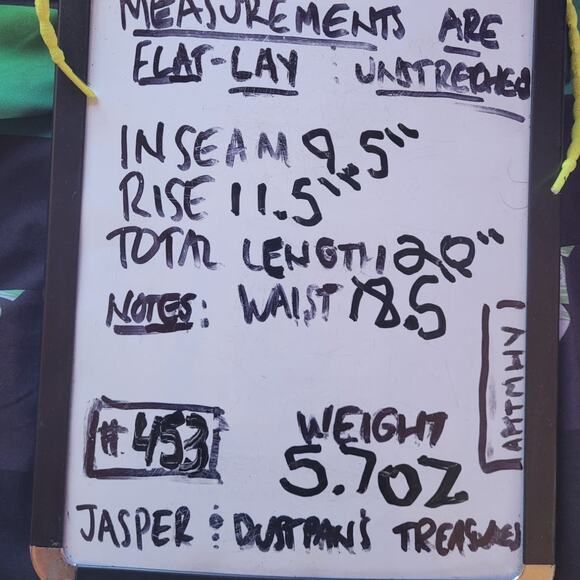 MEASUREMENTS ARE
FLAT-LAY : UNSTRETCHED
INSEAM 9.5"
RISE 11.5"
TOTAL LENGTH 20"
NOTES: WAIST 18.5"
#453
WEIGHT
5.7OZ
JASPER : DUSTPAN'S TREASURES